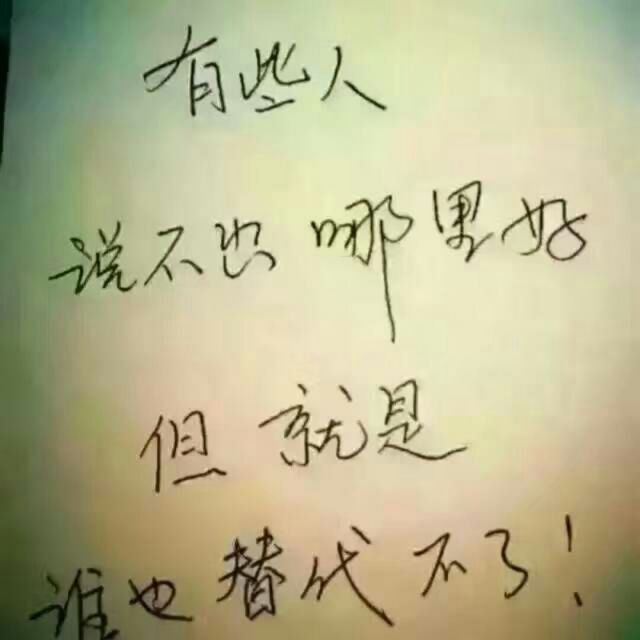 有些人
说不出哪里好
但就是
谁也替代不了！